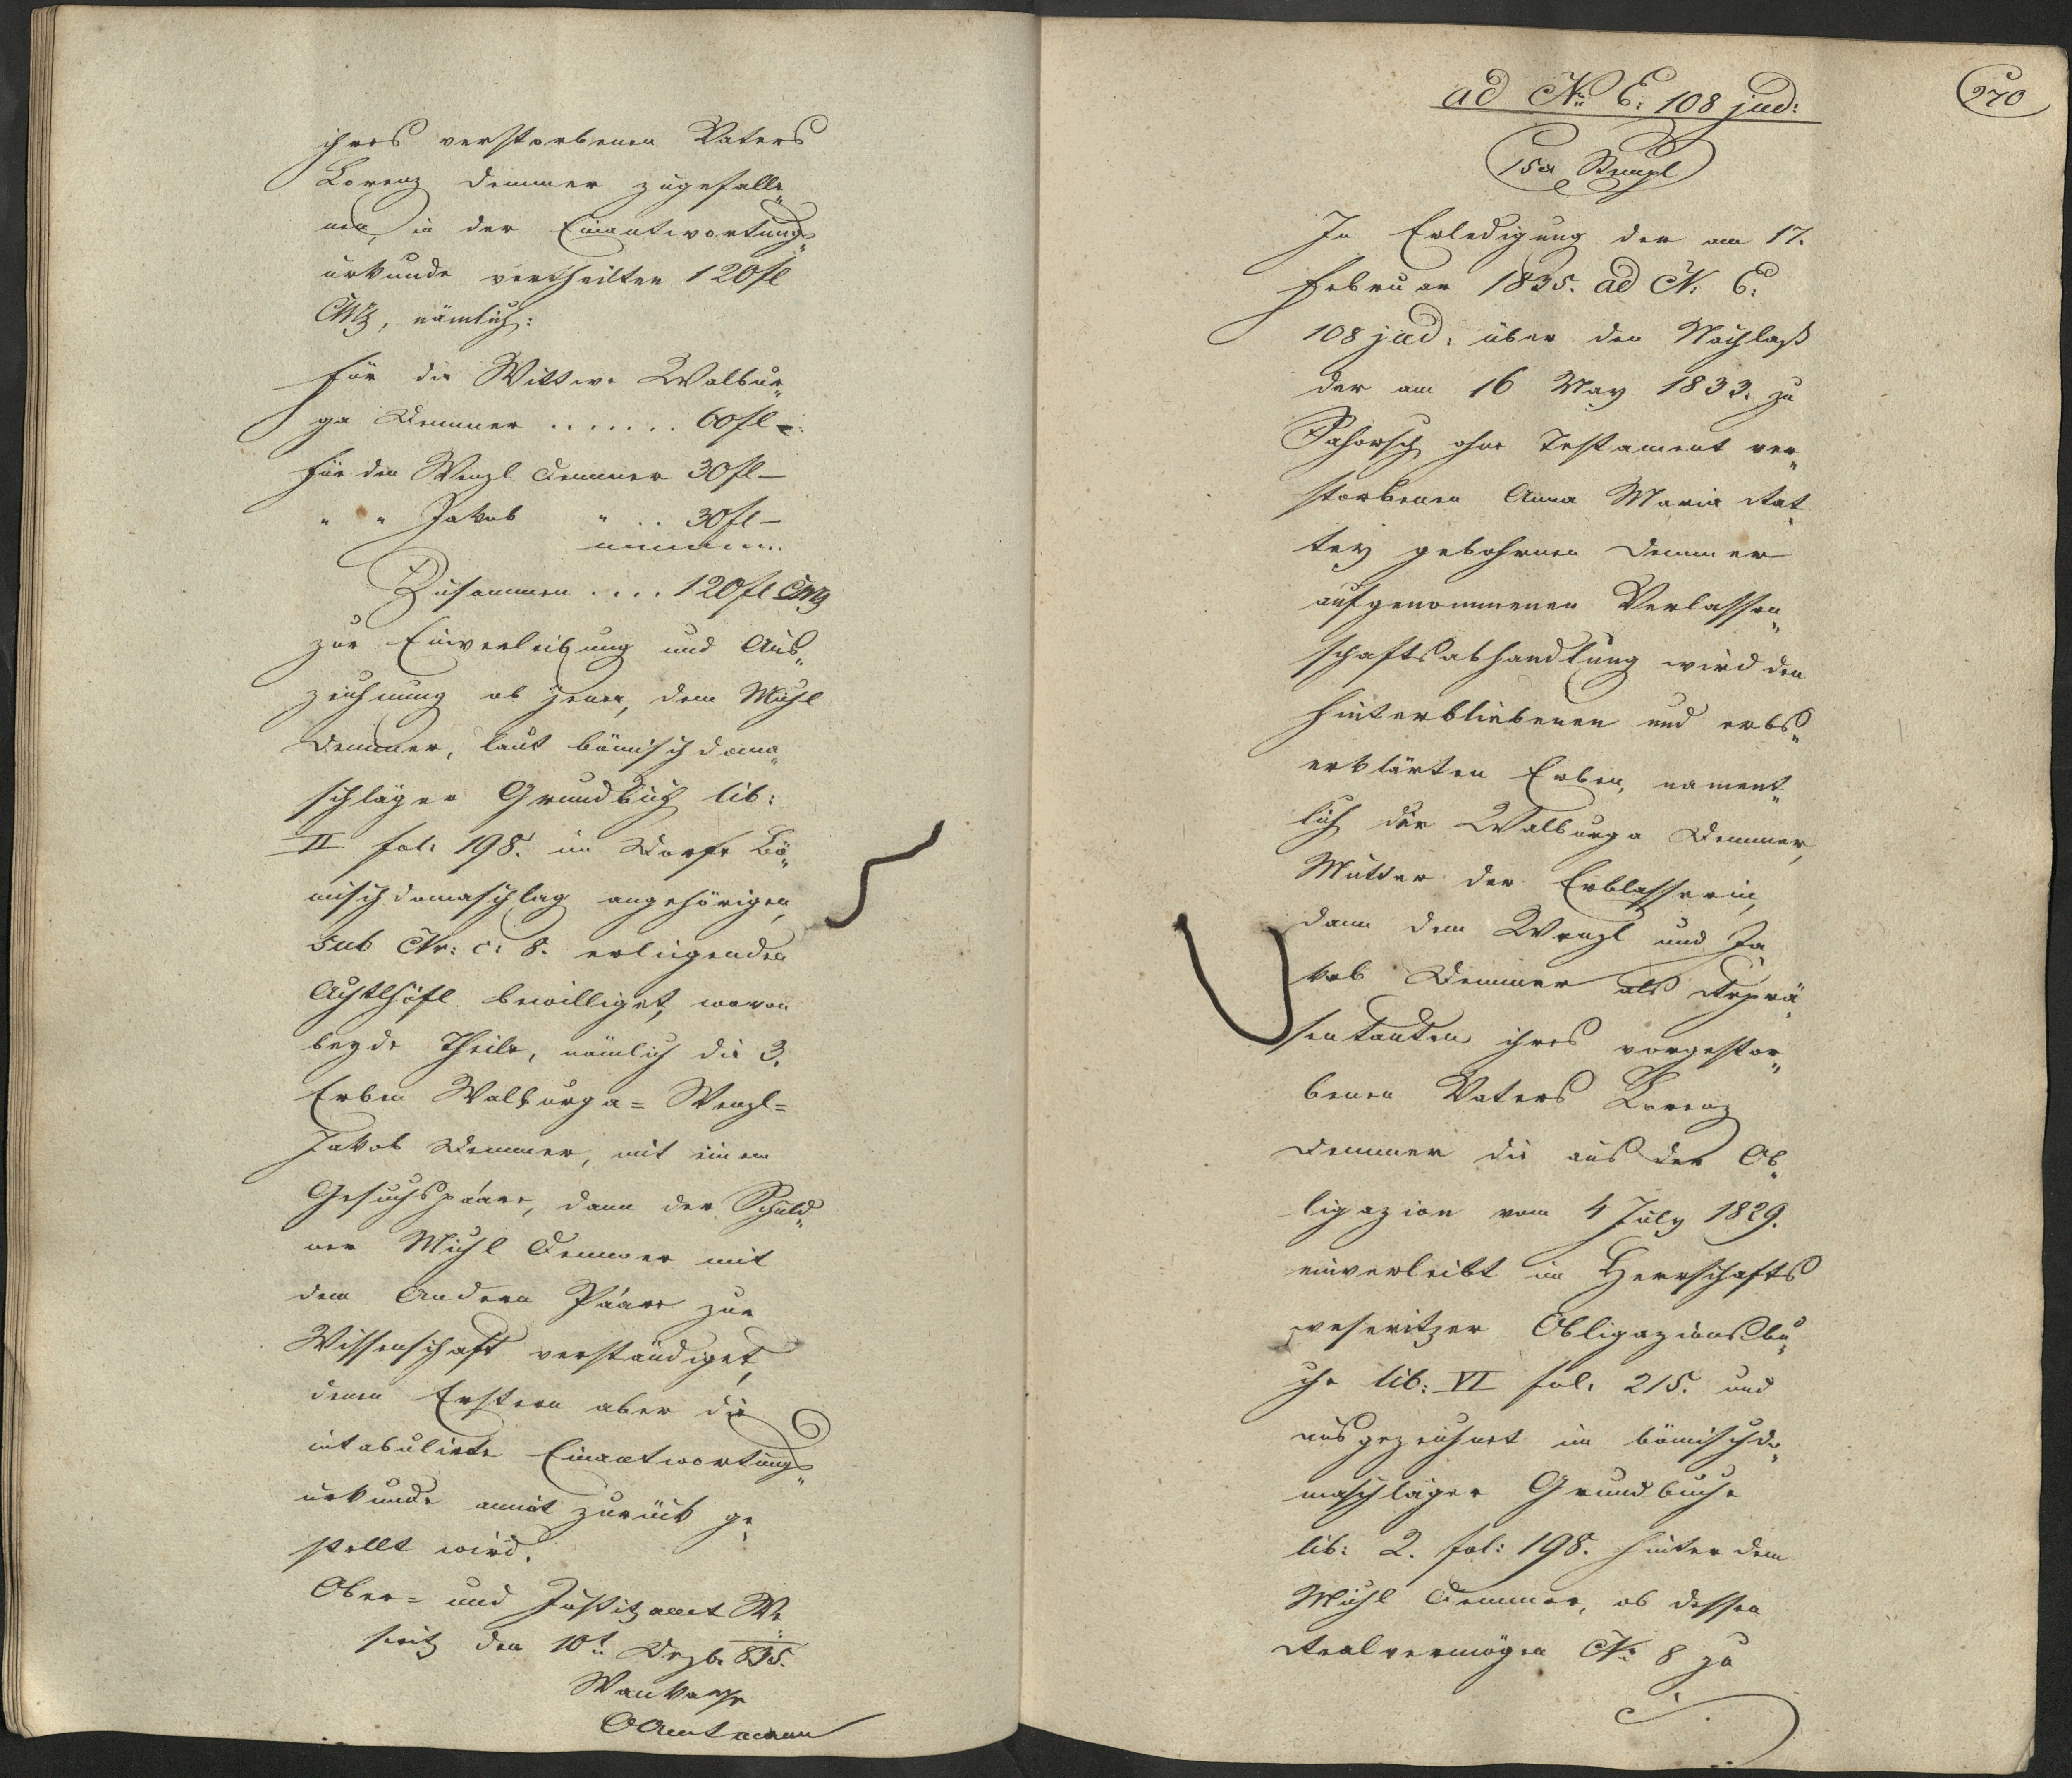 ihres verstorbenen Vaters
Lorenz Demmer zugefalle„
nen, in der Einantwortungs„
urkunde vertheilten 120 fl
CMz, nämlich:
für die Wittwe Walbur„
ga Demmer ....... 60 fl –
für den Wenzl Demmer 30 fl –
" " Jakob " .. 30 fl –
Zusammen .... 120 fl CMz
zur Einverleibung und Aus„
zeichnung ob jenen, dem Michl
Demmer, laut bömischdoma„
schläger Grundbuch lib:
II fol: 198. im Dorfe Bö„
mischdomaschlag angehörigen,
sub Nr: c: 8. erliegenden
Achtlhöfl bewilliget, wovon
beyde Theile, nämlich die 3.
Erben Walburga= Wenzl=
Jakob Demmer, mit einem
Gesuchspaare, dann der Schuld„
ner Michl Demmer mit
dem Andern Paare zur
Wissenschaft verständiget,
denen Erstern aber die
intabulirte Einantwortungs„
urkunde anmit zurück ge„
stellt wird.
Ober= und Justizamt We„
seritz den 10t: Dezb: 835.
OAmtmann
270
ad Nr: E: 108 jud:
15 x Stempl
In Erledigung der am 17.
Februar 1835. ad N: E:
108 jud: über den Nachlaß
der am 16 May 1833. zu
ohne Testament ver„
storbenen Anna Maria Rat„
tey gebohrnen Demmer
aufgenommenen Verlassen„
schaftsabhandlung wird den
hinterbliebenen und erbs„
erklärten Erben, nament„
lich der Walburga Demmer,
Mutter der Erblasserin,
dann dem Wenzl und Ja„
kob Demmer als Reprä„
sentanten ihres vorgestor„
benen Vaters Lorenz
Demmer die aus der Ob„
ligazion vom 4 July 1829.
einverleibt im Herrschafts
weseritzer Obligazionsbu„
che lib: VI fol: 215. und
ausgezeichnet im bömischdo„
maschläger Grundbuche
lib: 2. fol: 198. hinter dem
Michl Demmer, ob dessen
Realvermögen N: 8 zu